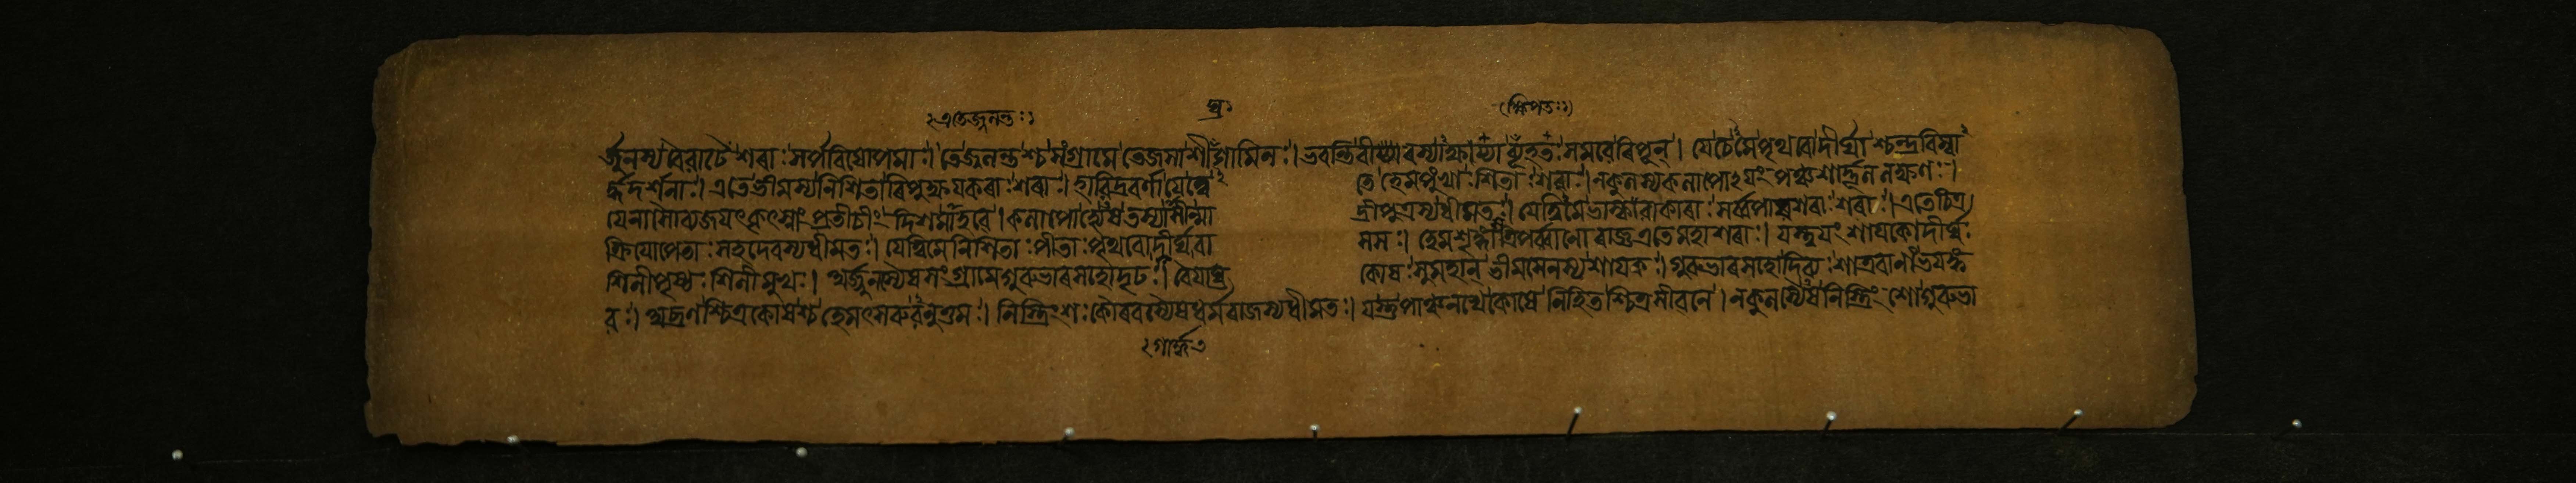 এতেজ্জ্বলন্তঃ ঘ্র ক্ষিপতঃ
র্জুনস্যবৈরাটে শরাঃ সর্পবিষোপমাঃ। তেজ্বলন্তশ্চসংগ্রামে তেজসাশীঘ্রগামিনঃ। ভবন্তিবীরস্যাক্ষয্যাব্যূহতঃসমরেরিপূন্। যেচেমেপৃথবোদীর্ঘাশ্চন্দ্রবিম্বা
র্দ্ধদর্শনাঃ। এতেভীমস্যনিশিতারিপুক্ষয়করাঃশরাঃ। হারিদ্রবর্ণাযেত্বে তেহেমপুংখাঃশিতাঃশরাঃ। নকুলস্যকলাপোঽয়ং পঞ্চশার্দ্দূললক্ষণঃ।
যেনাসৌব্যজয়ৎকৃৎস্নাং প্রতীচীং দিশমাহবে। কলাপোহ্যেষতস্যাসীন্মা দ্রীপুত্রস্যধীমতঃ। যেত্বিমেভাস্করাকারাঃ সর্ব্বপারশবাঃ শরাঃ। এতেচিত্র
ক্রিয়োপেতাঃ সহদেবস্যধীমতঃ। যেত্বিমেনিশিতাঃ পীতাঃ পৃথবোদীর্ঘবা সসঃ। হেমশৃঙ্গাস্ত্রিপর্ব্বাণো রাজ্ঞএতেমহাশরাঃ। যস্তুয়ং শায়কোদীর্ঘঃ
শিলীপৃষ্ঠঃ শিলীমুখঃ। অর্জ্জুনস্যৈষসংগ্রামেগুরুভারসহোদৃঢঃ। বৈয়াঘ্র কোষঃ সুমহান্ ভীমসেনস্যশায়কঃ। গুরুভারসহোদিব্যঃ শাত্রবানাংভয়ঙ্ক
রঃ। শ্চিত্রকোষশ্চহেমৎসরুরনুত্তমঃ। নিস্ত্রিংশঃ কৌরবস্যৈষধর্মরাজস্যধীমতঃ। যস্তুপাঞ্চনখেকোষে নিহিতশ্চিত্রসীবনে। নকুলস্যৈষনিস্ত্রিংশোগুরুভা